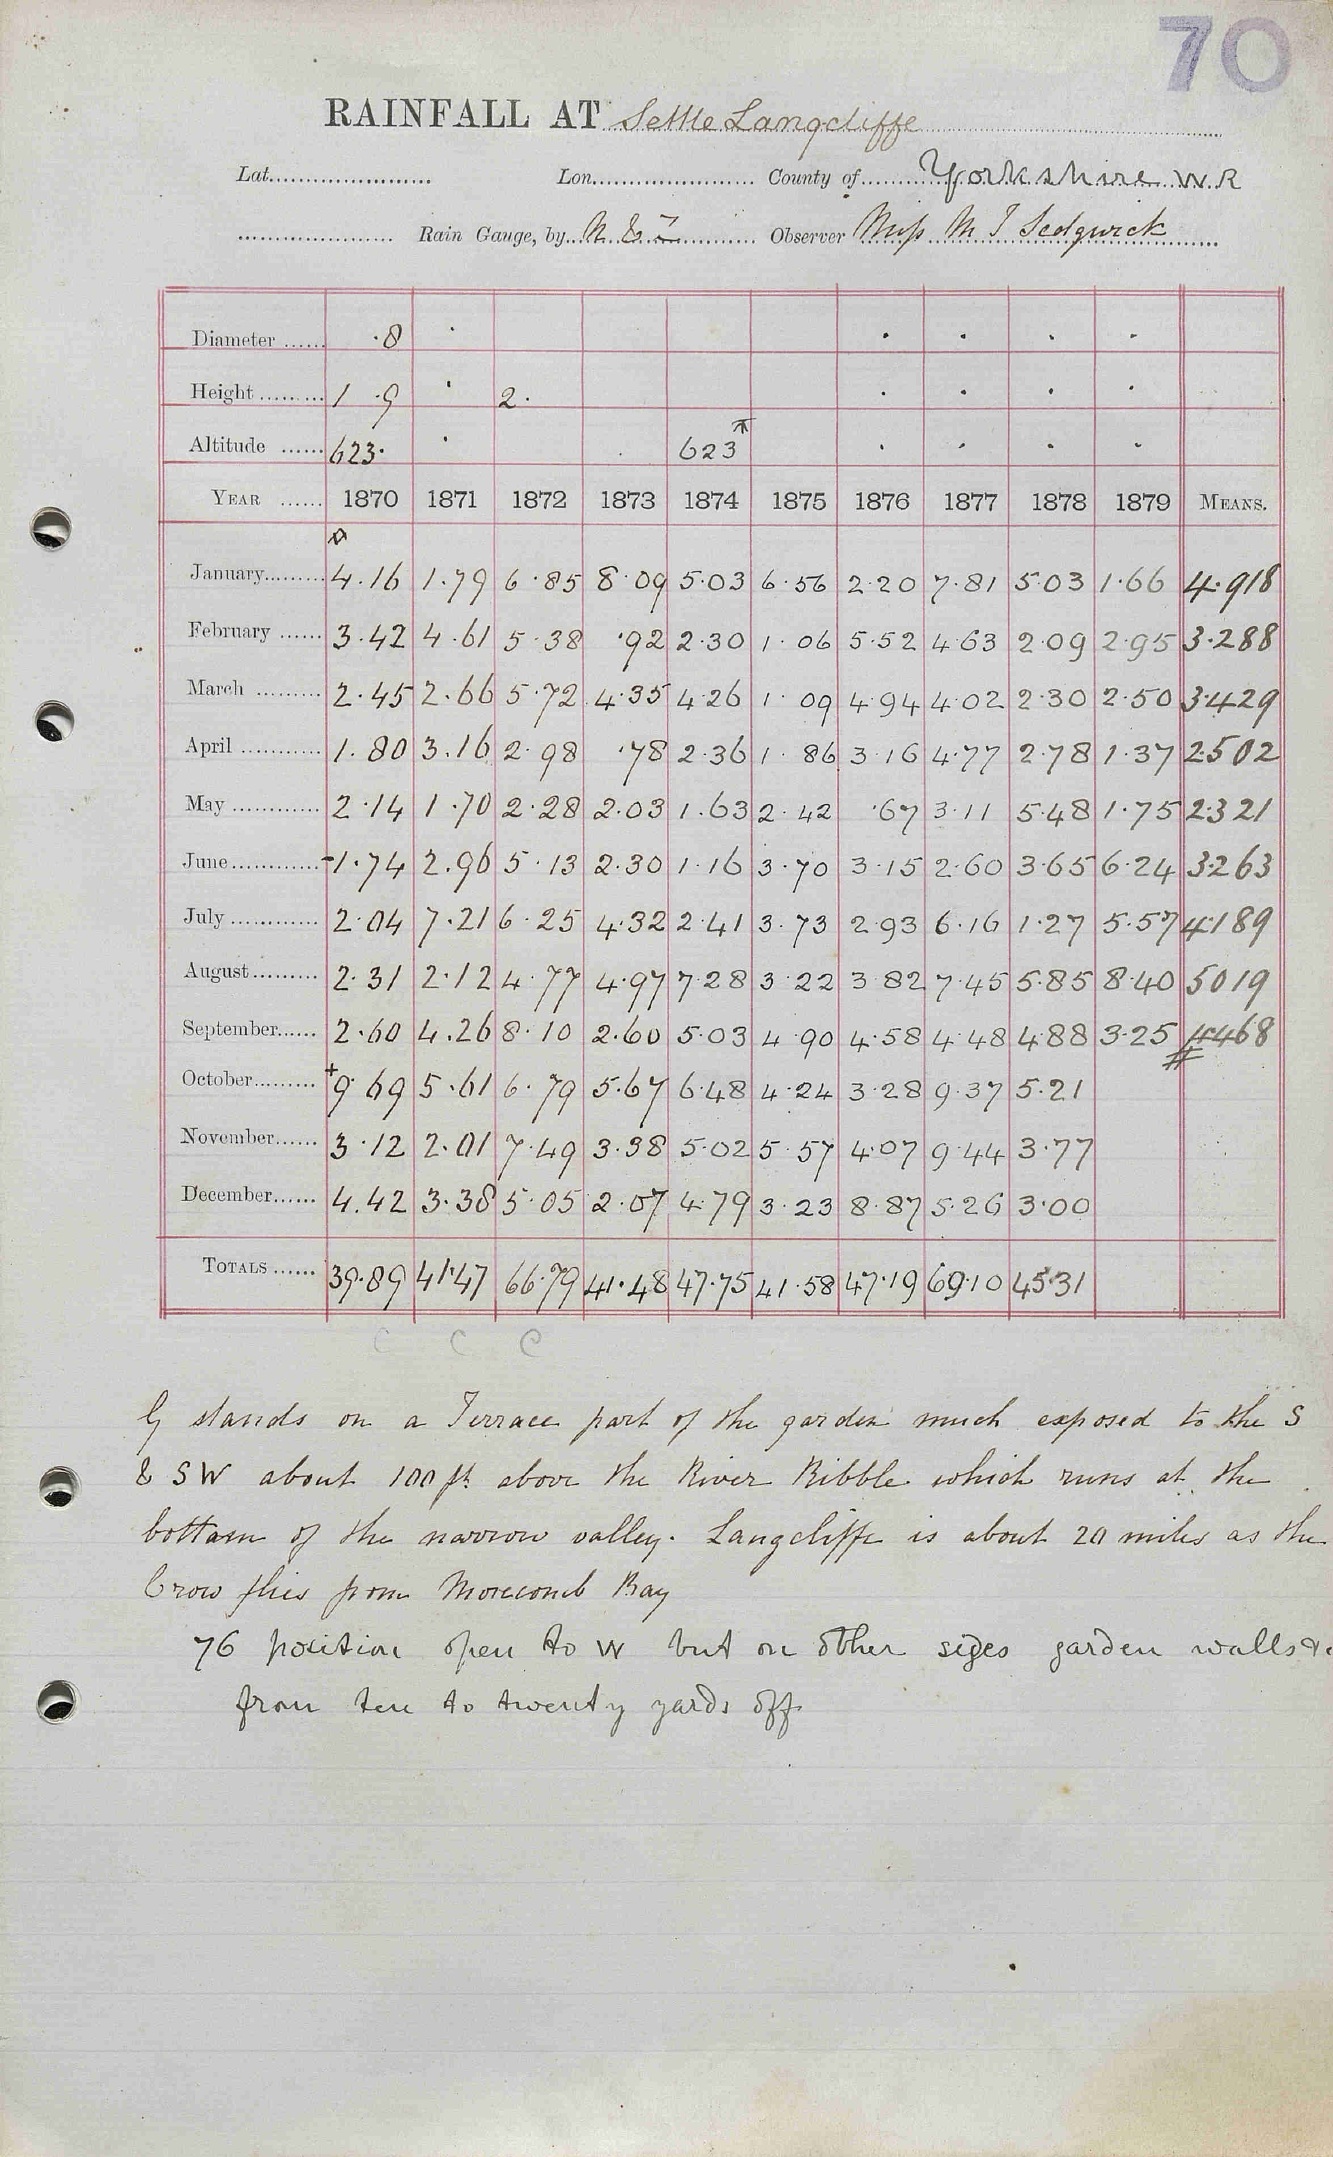 70
RAINFALL AT Settle Langcliffe
Lat. Lon. County of Yorkshire W.R
Rain Gauge, by N & Z Observer Miss M J Sedgwick
Diameter ·8
Height 1 ·9 2·
Altitude 623· 623
YEAR 1870 1871 1872 1873 1874 1875 1876 1877 1878 1879 MEANS.
January 4·16 1·79 6·85 8·09 5·03 6·56 2·20 7·81 5·03 1·66 4·918
February 3·42 4·61 5·38 ·92 2·30 1·06 5·52 4·63 2·09 2·95 3·288
March 2·45 2·66 5·72 4·35 4·26 1·09 4·94 4·02 2·30 2·50 3·429
April 1·80 3·16 2·98 ·78 2·36 1·86 3·16 4·77 2·78 1·37 2·502
May 2·14 1·70 2·28 2·03 1·63 2·42 ·67 3·11 5·48 1·75 2·321
June -1·74 2·96 5·13 2·30 1·16 3·70 3·15 2·60 3·65 6·24 3·263
July 2·04 7·21 6·25 4·32 2·41 3·73 2·93 6·16 1·27 5·57 4·189
August 2·31 2·12 4·77 4·97 7·28 3·22 3·82 7·45 5·85 8·40 5019
September 2·60 4·26 8·10 2·60 5·03 4·90 4·58 4·48 4·88 3·25 4·468
October +9·69 5·61 6·79 5·67 6·48 4·24 3·28 9·37 5·21
November 3·12 2·01 7·49 3·38 5·02 5·57 4·07 9·44 3·77
December 4·42 3·38 5·05 2·07 4·79 3·23 8·87 5·26 3·00
TOTALS 39·89 41·47 66·79 41·48 47·75 41·58 47·19 69·10 45·31
C C C
G stands on a Terrace part of the garden much exposed to the S
& SW about 100 ft above the River Ribble which runs at the
bottom of the narrow valley. Langcliffe is about 20 miles as the
Crow flies from Morecomb Bay
76 position open to W but on other sides garden walls &c
from ten to twenty yards off